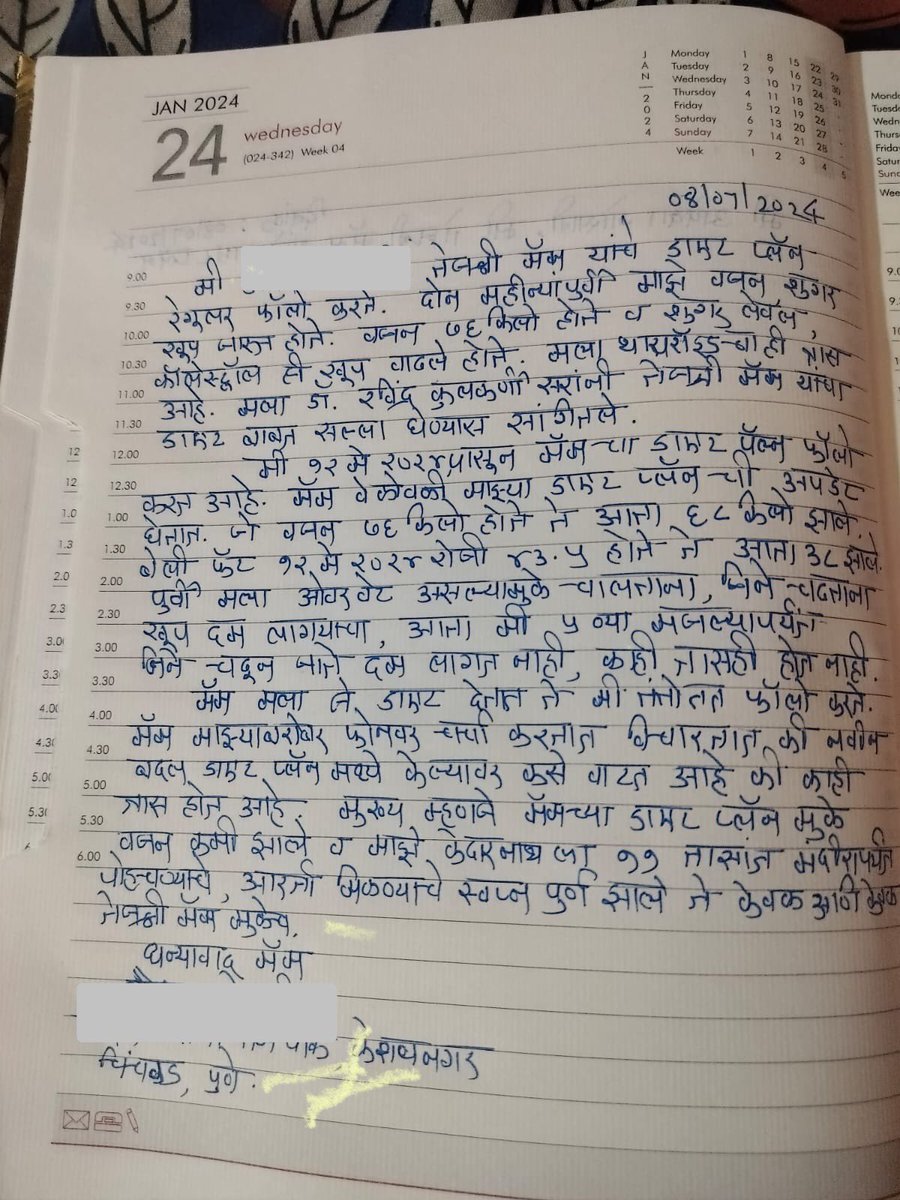 JAN 2024
24 wednesday
(024-342) Week 04
JAN 2024
Monday 1 8 15 22 29
Tuesday 2 9 16 23 30
Wednesday 3 10 17 24 31
Thursday 4 11 18 25
Friday 5 12 19 26
Saturday 6 13 20 27
Sunday 7 14 21 28
Week 1 2 3 4 5
08/07/2024
मी तेजश्री मॅम यांचे डाएट प्लॅन
9.00
रेगुलर फॉलो करते. दोन महीन्यापुर्वी माझे वजन शुगर
9.30
खूप जास्त होते. वजन ७६ किलो होते व शुगर लेवल,
10.00
कॉलेस्ट्रॉल ही खूप वाढले होते. मला थायरॉइडचा ही त्रास
10.30
आहे. मला डॉ. रविंद्र कुलकर्णी सरांनी तेजश्री मॅम यांचा
11.00
डाएट बाबत सल्ला घेण्यास सांगितले.
11.30
मी १२ मे २०२४ पासून मॅमचा डाएट प्लॅन फॉलो
12.00
करत आहे. मॅम वेळोवेळी माझ्या डाएट प्लॅनची अपडेट
12.30
घेतात. जे वजन ७६ किलो होते ते आता ६८ किलो झाले.
1.00
बेली फॅट १२ मे २०२४ रोजी ४३.५ होते ते आता ३८ झाले.
1.30
पुर्वी मला ओवरवेट असल्यामुळे चालताना, जिने चढताना
2.00
खूप दम लागयाचा, आता मी ५ व्या मजल्यापर्यंत
2.30
जिने चढून जाते दम लागत नाही, काही त्रासही होत नाही.
3.00
मॅम मला जे डाएट देतात ते मी तंतोतंत फॉलो करते.
3.30
मॅम माझ्याबरोबर फोनवर चर्चा करतात विचारतात की नवीन
4.00
बदल डाएट प्लॅन मध्ये केल्यावर कसे वाटत आहे की काही
4.30
त्रास होत आहे. मुख्य म्हणजे मॅमच्या डाएट प्लॅन मुळे
5.00
वजन कमी झाले व माझे केदारनाथ ला ११ तासांत मंदीरापर्यंत
5.30
पोहचण्याचे, आरती मिळण्याचे स्वप्न पुर्ण झाले ते केवळ आणि केवळ
6.00
तेजश्री मॅम मुळेच.
धन्यावाद मॅम
केशवनगर
चिंचवड, पुणे.